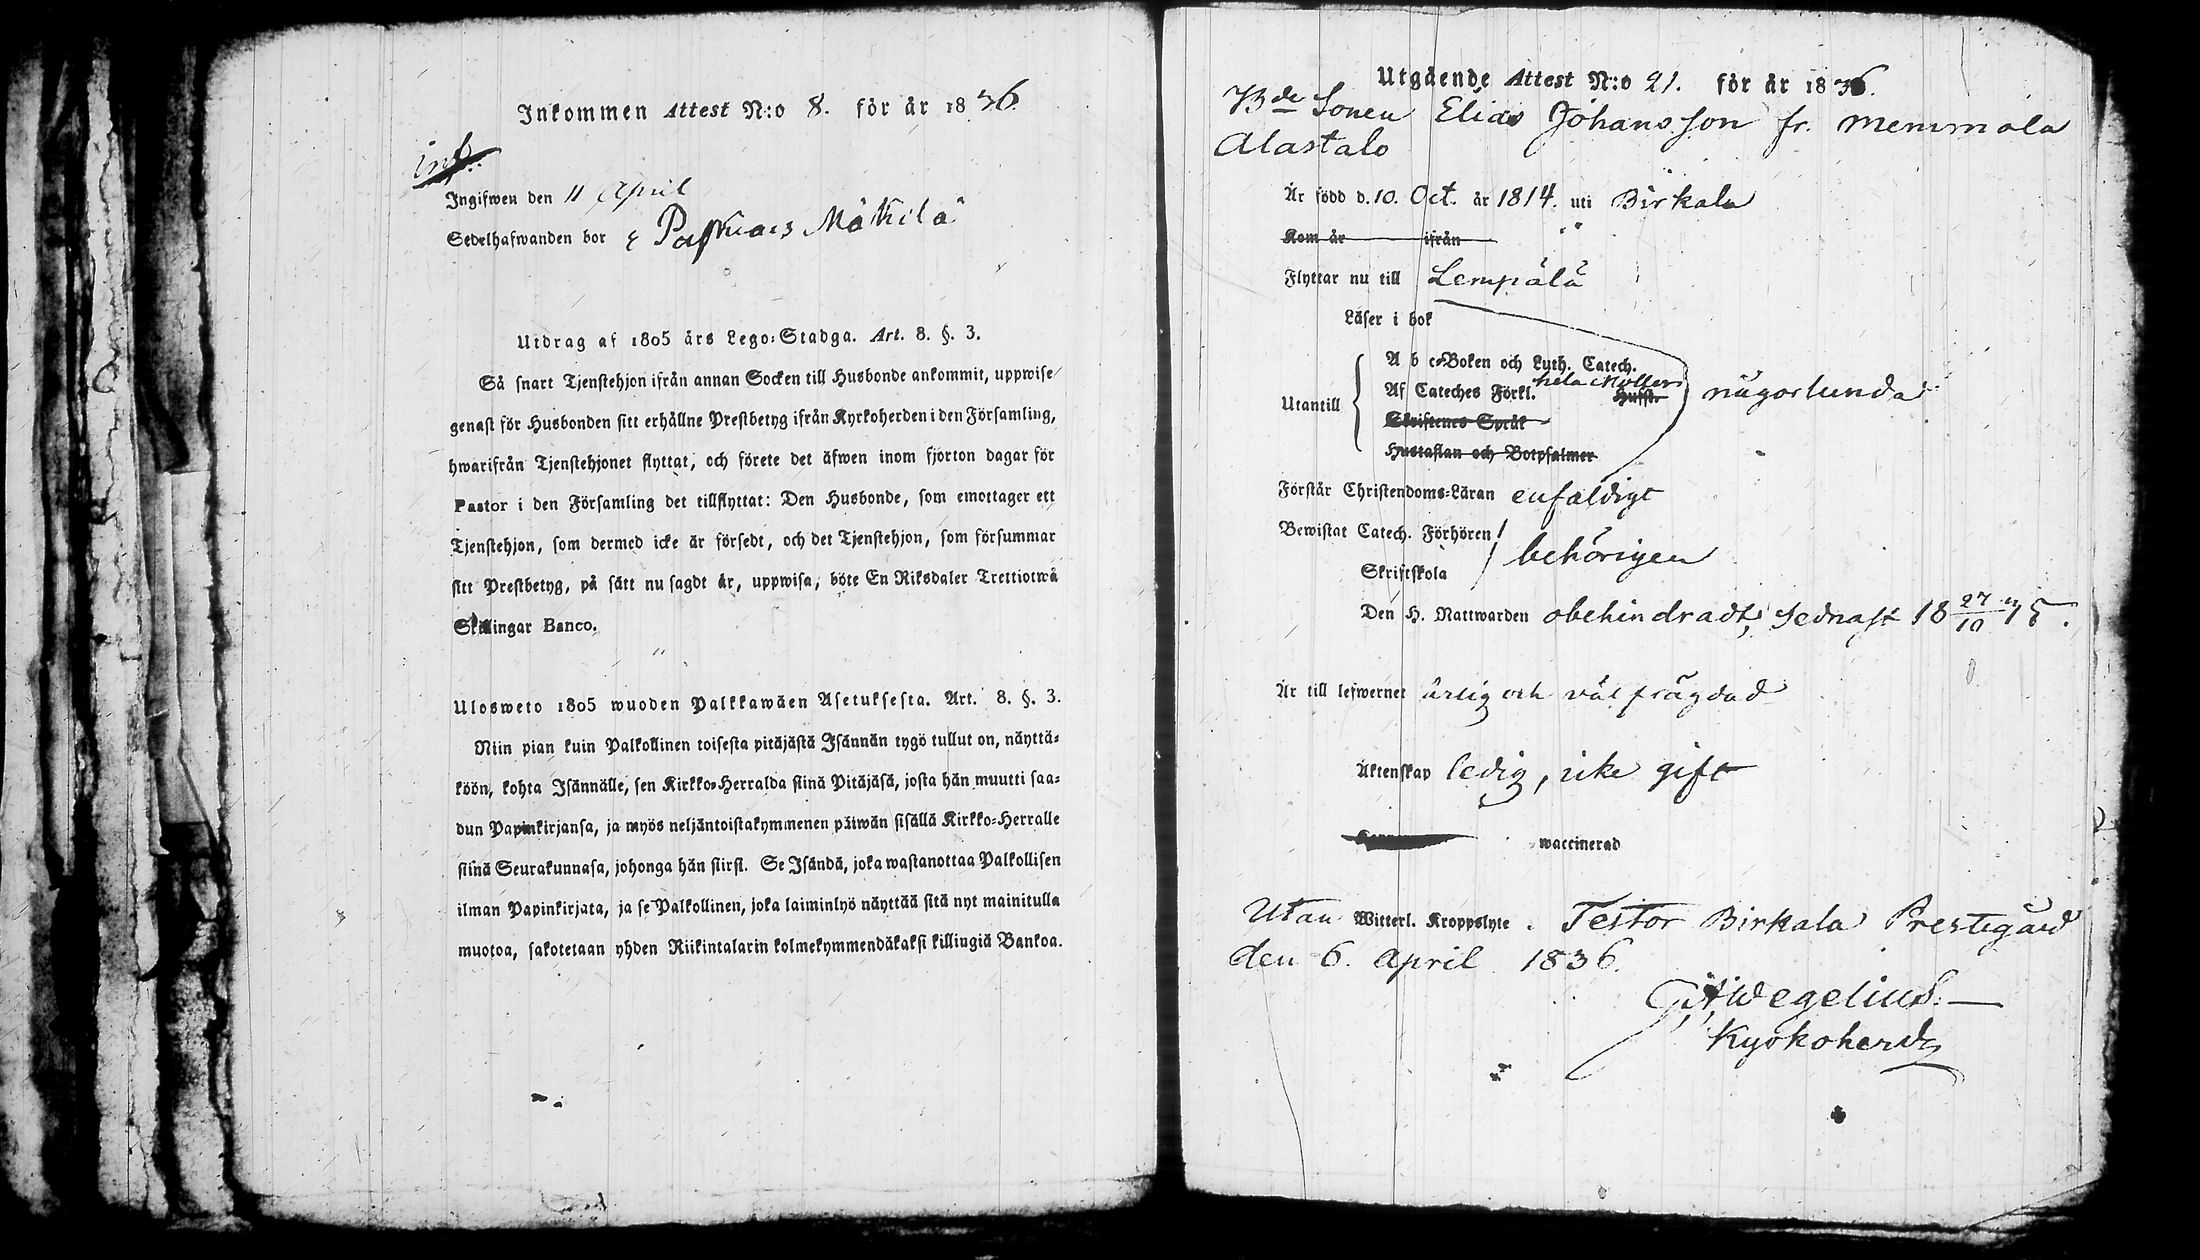 Inkommen Attest N:o 8. för år 1836.
inf.
Ingifwen den 11 April
Sedelhafwanden bor Mäkilä
Utdrag af 1805 års Lego-Stadga. Art. 8. §. 3.
Så snart Tjenstehjon ifrån annan Socken till Husbonde ankommit, uppwise
genast för Husbonden sitt erhållne Prestbetyg ifrån Kyrkoherden i den Församling,
hwarifrån Tjenstehjonet flyttat, och förete det äfwen inom fjorton dagar för
Pastor i den Församling det tillflyttat: Den Husbonde, som emottager ett
Tjenstehjon, som dermed icke är försedt, och det Tjenstehjon, som försummar
sitt Prestbetyg, på sätt nu sagdt är, uppwisa, böte En Riksdaler Trettiotwå
Skillingar Banco.
Ulosweto 1805 wuoden Palkkawäen Asetuksesta. Art. 8. §. 3.
Niin pian kuin Palkollinen toisesta pitäjästä Isännän tygö tullut on, näyttä-
köön, kohta Isännälle, sen Kirkko-Herralda siinä Pitäjäsä, josta hän muutti saa-
dun Papinkirjansa, ja myös neljäntoistakymmenen päiwän sisällä Kirkko-Herralle
siinä Seurakunnasa, johonga hän siirsi. Se Isändä, joka wastanottaa Palkollisen
ilman Papinkirjata, ja se Palkollinen, joka laiminlyö näyttää sitä nyt mainitulla
muotoa, sakotetaan yhden Riikintalarin kolmekymmendäkaksi killingiä Bankoa.
Utgående Attest N:o 21. för år 1836.
Bde Sonen Elias Johansson fr. Memmola
Alastalo
Är född d. 10. Oct. år 1814. uti Birkala
Kom år ifrån
Flyttar nu till Lempälä
Läser i bok
A b c-Boken och Luth. Catech.
Utantill Af Cateches Förkl. hela Möllers Husst. någorlunda
Skriftenes Språk
Hustaflan och Botpsalmer
Förstår Christendoms-Läran enfaldigt
Bewistat Catech. Förhören
behörigen
Skriftskola
Den H. Nattwarden obehindradt, sednast 18 27/10 35.
Är till lefwernet ärlig och väl frägdad
Äktenskap ledig, icke gift
waccinerad
Utan Witterl. Kroppslyte. Testor Birkala Prestegård
den 6. April 1836.
G. A. Wegelius.
Kyrkoherde